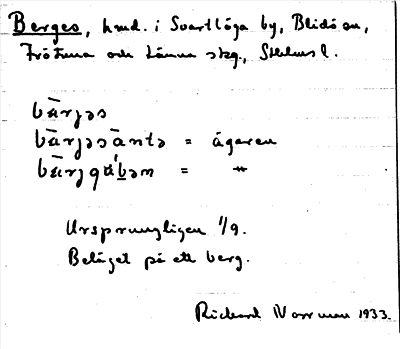 Berges, hmd. i Svartlöga by, Blidö sn,
Frötuna och Länna skg., Sthlms l.
bā̈rjəs
bā̈rjəsàntə = ägaren
bā̈rjgɯ́bən = "
Ursprungligen 1/9.
Beläget på ett berg.
Rickard Norrman 1933.